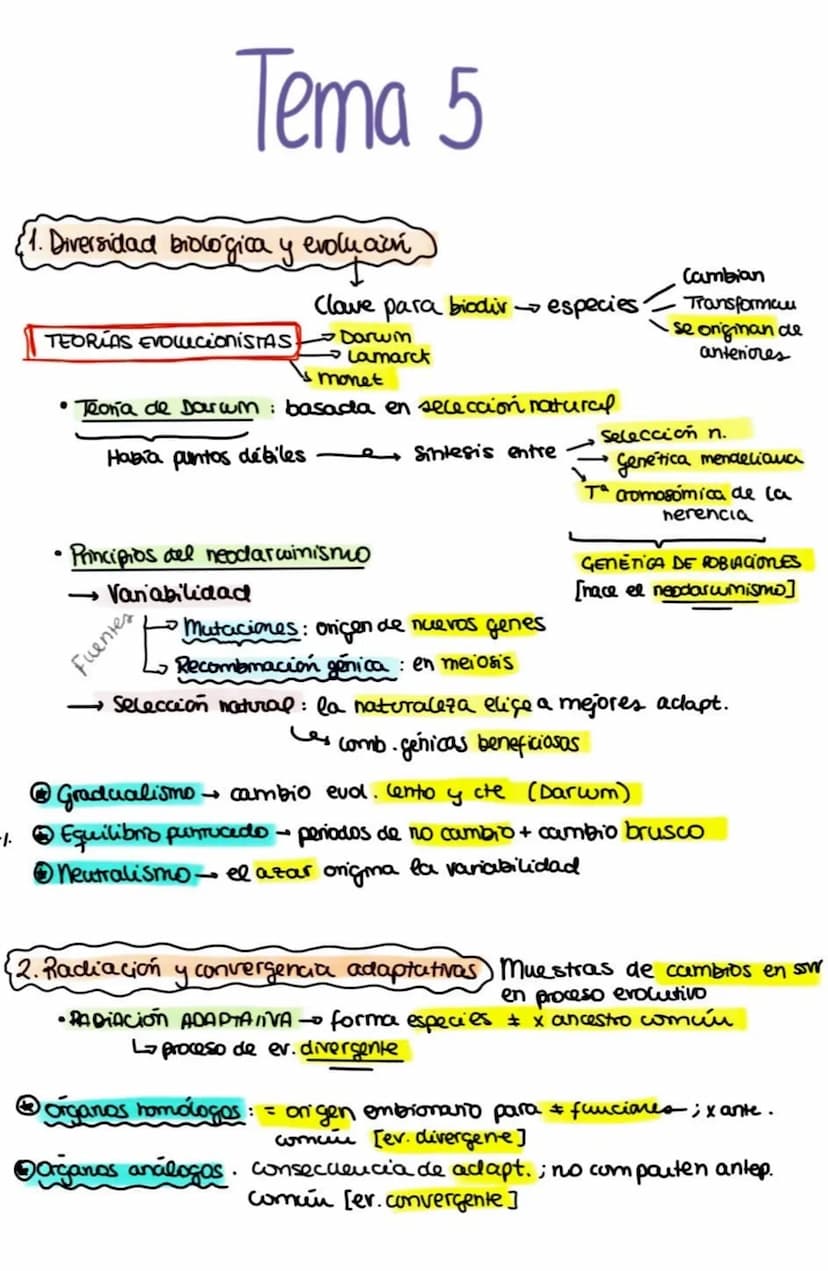 Tema 5
1. Diversidad biológica y evolución
Clave para biodiv → especies
Cambian
Transforman
se originan de
anteriores
TEORÍAS EVOLUCIONISTAS
→ Darwin
→ Lamarck
→ monet
• Teoría de Darwin : basada en selección natural
Había puntos débiles → Síntesis entre
Selección n.
→ Genética mendeliana
Tª cromosómica de la
herencia
GENÉTICA DE POBLACIONES
[nace el neodarwinismo]
• Principios del neodarwinismo
→ Variabilidad
Fuentes
→ Mutaciones : origen de nuevos genes
→ Recombinación génica : en meiosis
→ Selección natural : la naturaleza elige a mejores adapt.
↳ comb. génicas beneficiosas
Gradualismo → cambio evol. lento y cte (Darwin)
Equilibrio puntuado → periodos de no cambio + cambio brusco
Neutralismo → el azar origina la variabilidad
2. Radiación y convergencia adaptativas Muestras de cambios en ssvv
en proceso evolutivo
• RADIACIÓN ADAPTATIVA → forma especies ≠ x ancestro común
↳ proceso de ev. divergente
órganos homólogos : = origen embrionario para ≠ funciones ; x ante.
común [ev. divergente]
Órganos análogos . consecuencia de adapt. ; no comparten antep.
común [ev. convergente]